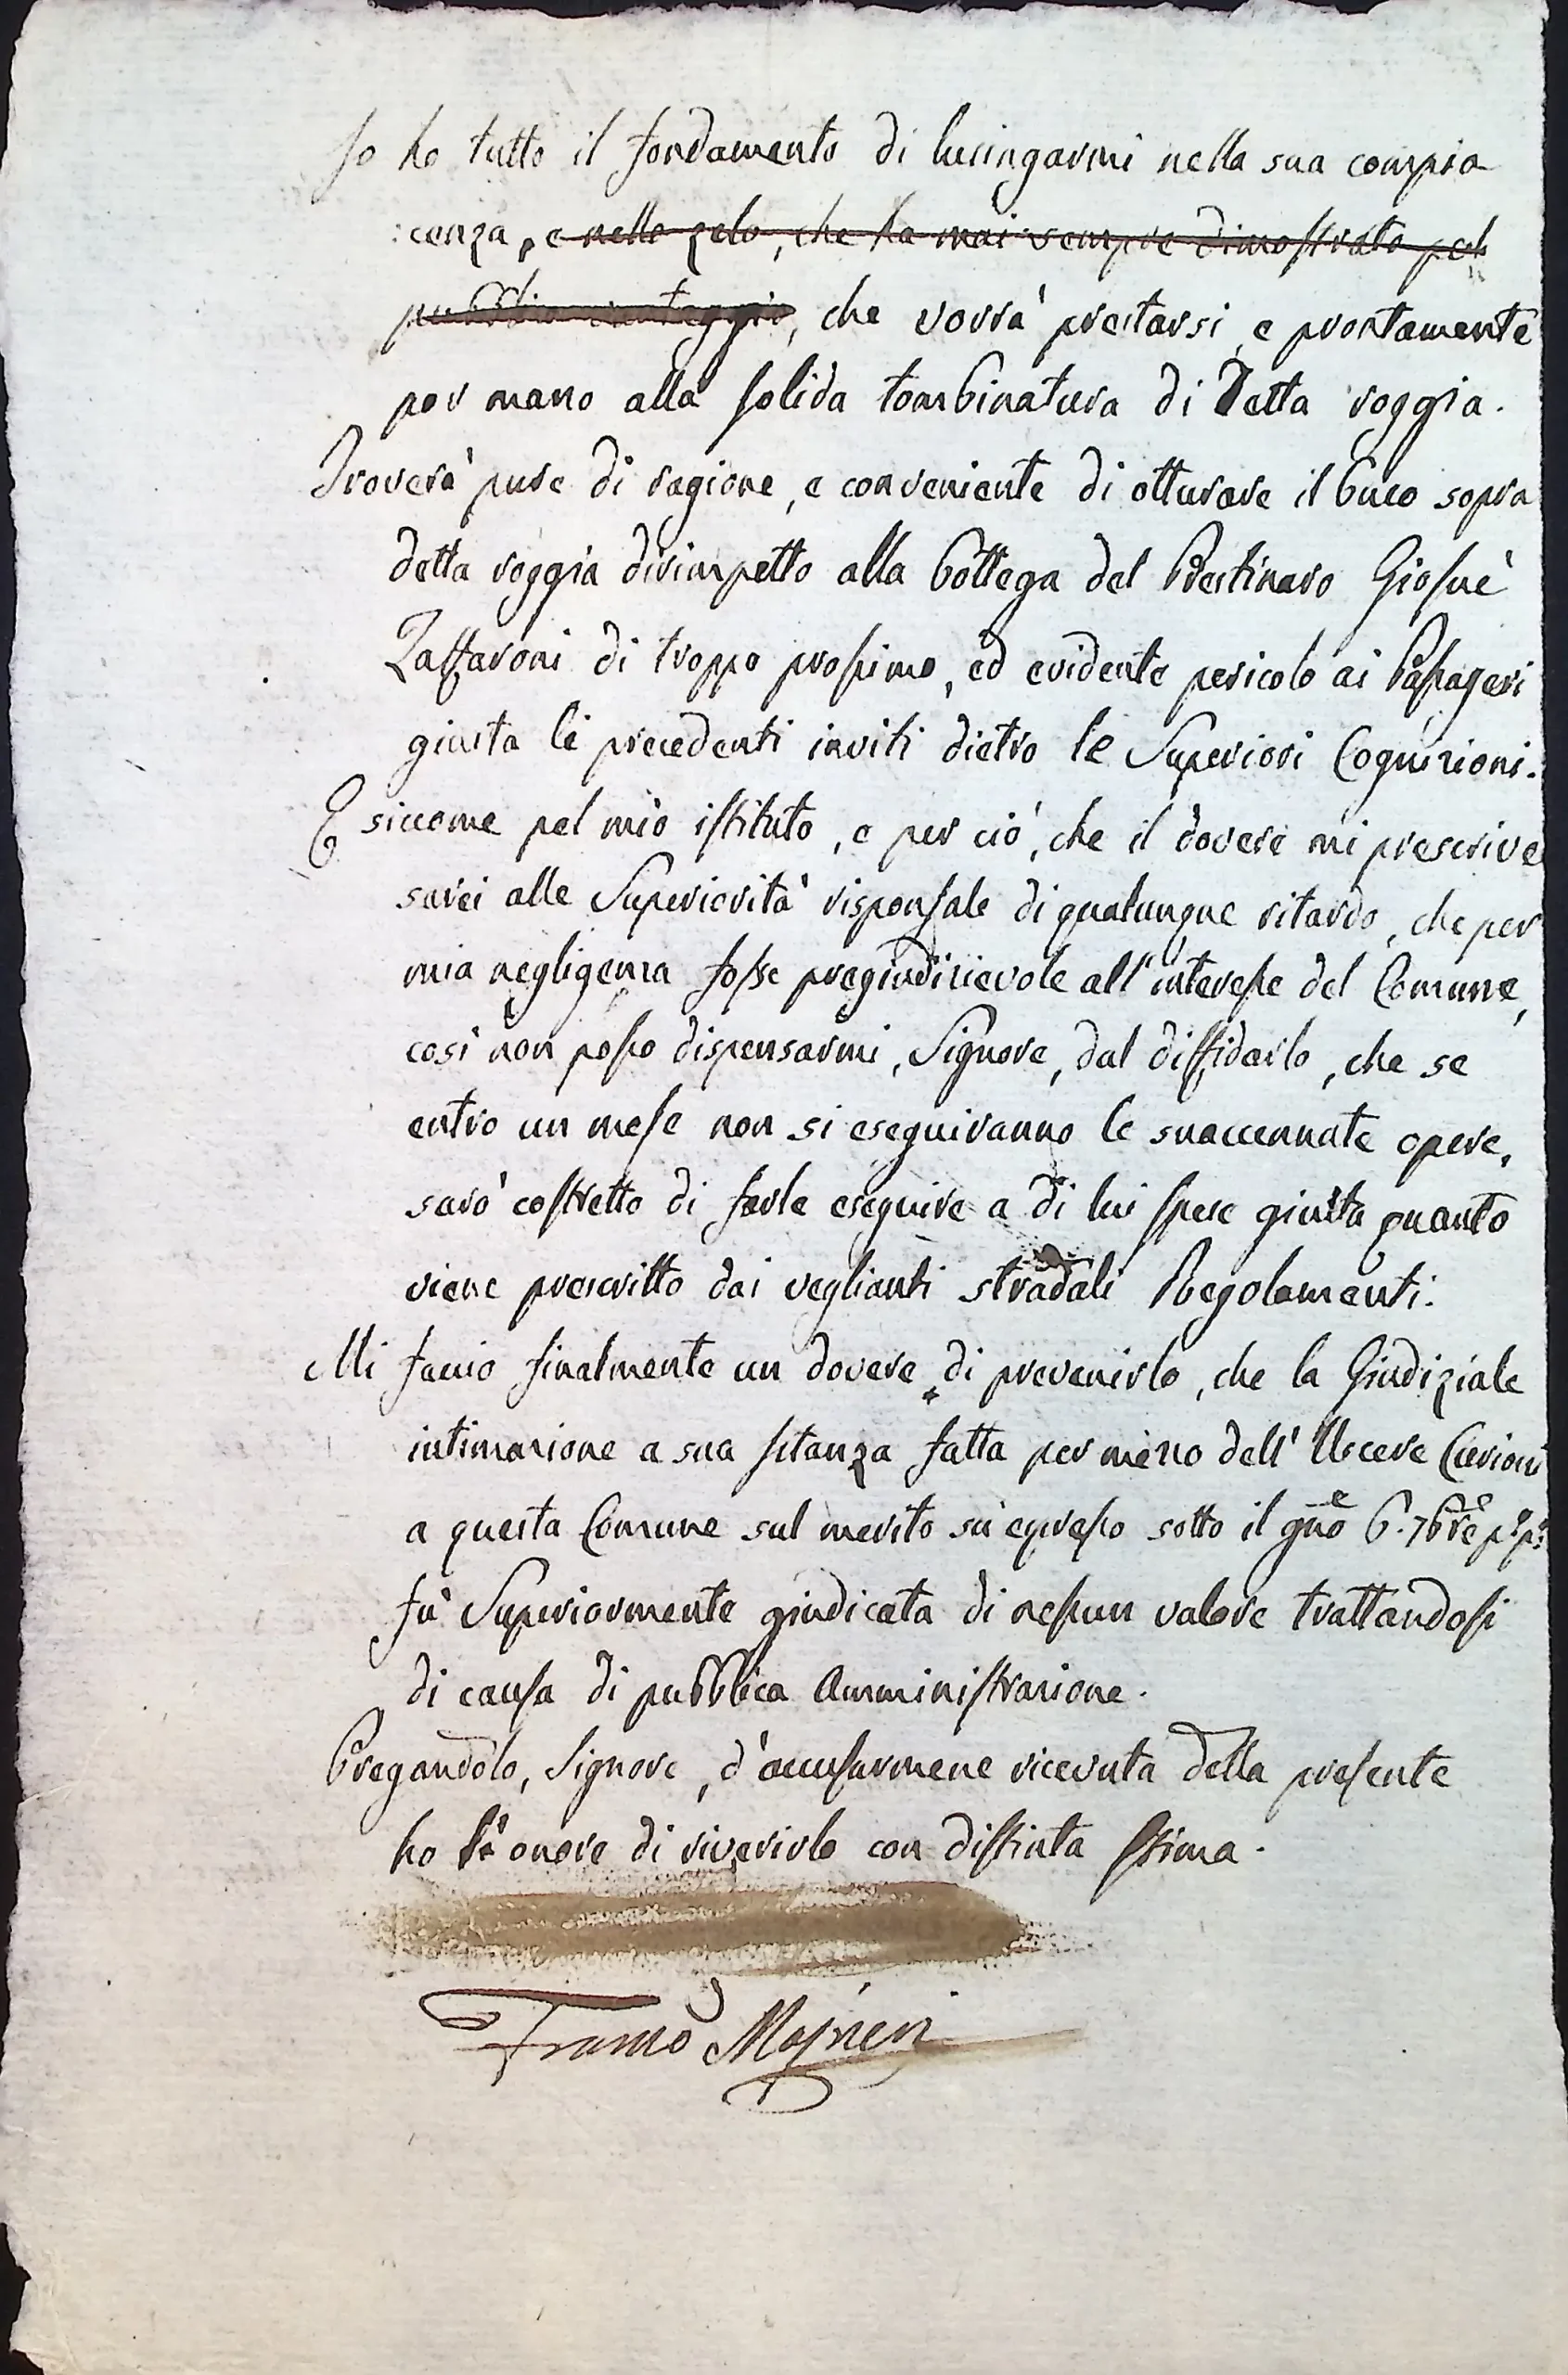 Io ho tutto il fondamento di lusingarmi nella sua compia
:cenza, e nello zelo, che ha mai sempre dimostrato pel
pubblico vantaggio, che vorrà prestarsi, e prontamente
por mano alla solida tombinatura di detta roggia.
Troverà pure di ragione, e conveniente di otturare il buco sopra
detta roggia dirimpetto alla bottega del Prestinaro Giosuè
Zaffaroni di troppo prossimo, ed evidente pericolo ai Passageri
giusta li precedenti inviti dietro le Superiori Cognizioni.
E siccome pel mio istituto, e per ciò, che il dovere mi prescrive
sarei alle Superiorità risponsale di qualunque ritardo, che per
mia negligenza fosse pregiudizievole all'interesse del Comune,
così non posso dispensarmi, Signore, dal diffidarlo, che se
entro un mese non si eseguiranno le suaccennate opere,
sarò costretto di farle eseguire a di lui spese giusta quanto
viene prescritto dai veglianti stradali Regolamenti.
Mi faccio finalmente un dovere di prevenirlo, che la Giudiziale
intimazione a sua istanza fatta per mezzo dell'Uscere Curioni
a questa Comune sul merito su espresso sotto il gno 6. 7bre p.º p.º
fu Superiormente giudicata di nessun valore trattandosi
di causa di pubblica Amministrazione.
Pregandolo, Signore, d'accusarmene ricevuta della presente
ho l'onore di riverirlo con distinta stima.